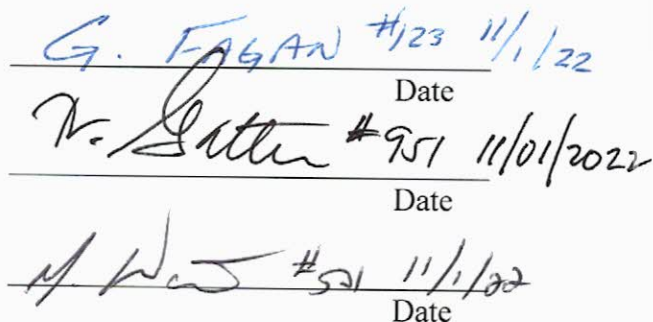 G. FAGAN #123 11/1/22
Date
#951 11/01/2022
Date
M. #521 11/1/22
Date